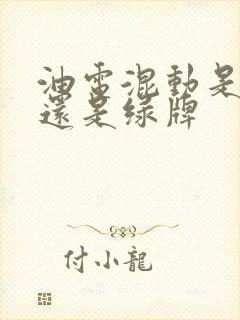 油電混動是
還是綠牌
付小龍